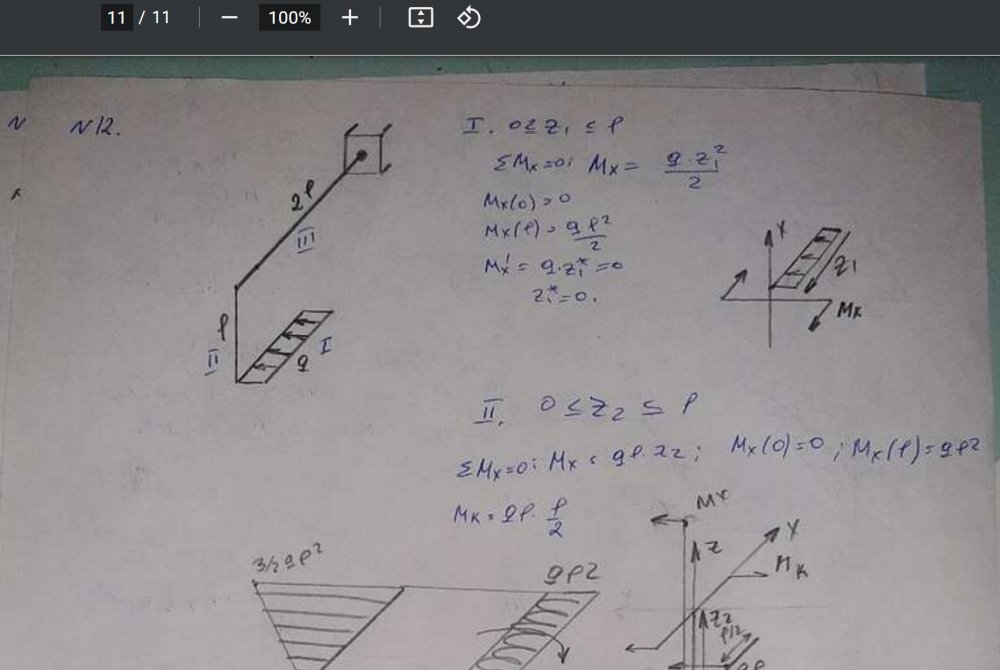 11 / 11
100%
N
N12.
2ℓ
III
ℓ
II
q
I
I. 0≤Z₁≤ℓ
ΣMx=0: Mx = q·z₁²/2
Mx(0)=0
Mx(ℓ)= qℓ²/2
Mx' = q·z₁*=0
z₁*=0.
Y
Z1
Mx
II. 0≤Z₂≤ℓ
ΣMx=0: Mx = qℓ·z₂; Mx(0)=0; Mx(ℓ)=qℓ²
Mк = qℓ·ℓ/2
Mx
Z
Y
Mк
Z2
ℓ/2
qℓ
3/2 qℓ²
qℓ²